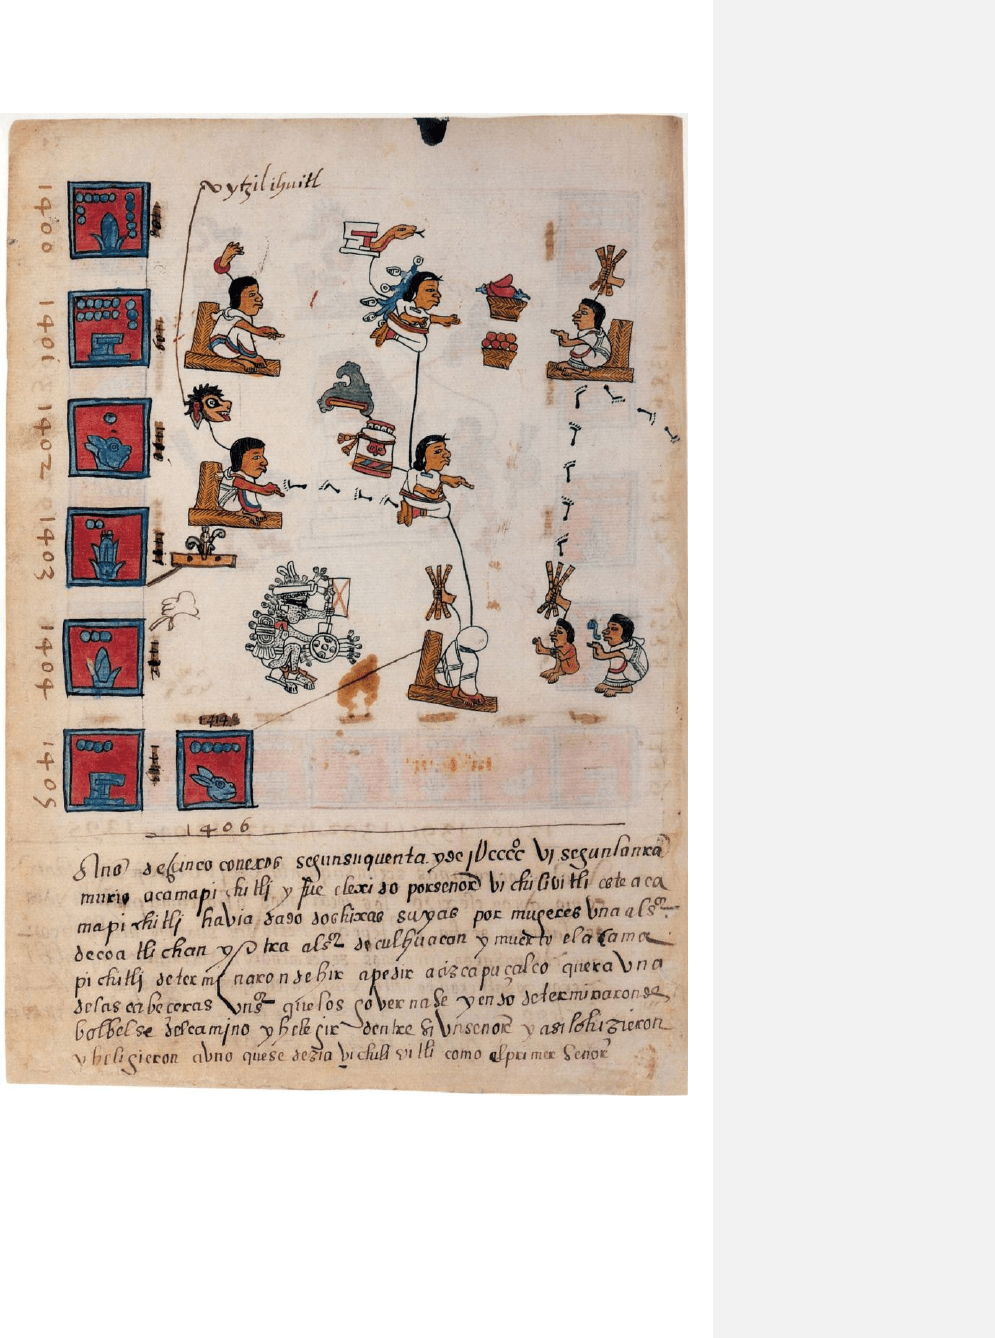 vytzilihuitl
1400
1401
1402
1403
1404
1405
1406
Año de cinco conexos segun su quenta. y de segun la nra
murio acamapichitli y fue elexido por señor vichilivitli este aca
mapichitli havia dado dos hixas suyas por mugeres una al sor
de coatlichan y otra al sor de culhuacan y muerto el acama
pichitli determinaron de hir a pedir a azcapuçalco quera una
de las cabeceras un sor que los governase y endo determinaron de
bolbelse del camino y helegir dentre si un señor y asi lo hizieron
y heligieron a uno que se dezia vichilivitli como el primer señor